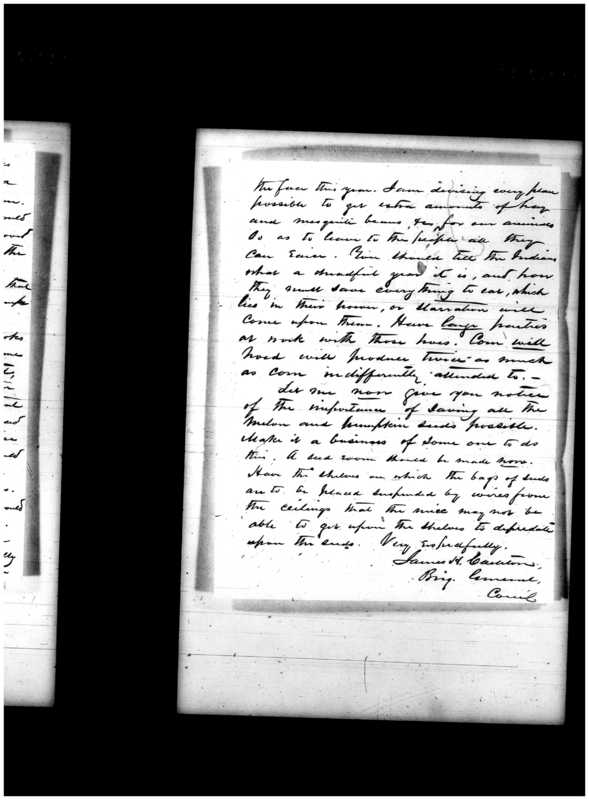 the face this year. I am devising every plan
possible to get extra amounts of hay
and mesquite beans, &c, for our animals
so as to leave to the people all they
can raise. You should tell the Indians
what a dreadful year it is, and how
they must save everything to eat, which
lies in their power, or starvation will
come upon them. Have large parties
at work with those hoes. Corn well
hoed will produce twice as much
as corn indifferently attended to. –
Let me now give you notice
of the importance of saving all the
melon and pumpkin seeds possible.
Make it a business of some one to do
this. A seed room should be made now.
Have the shelves on which the bags of seeds
are to be placed suspended by wires from
the ceilings that the mice may not be
able to get upon the shelves to depredate
upon the seeds. Very respectfully.
James H. Carleton,
Brig. General,